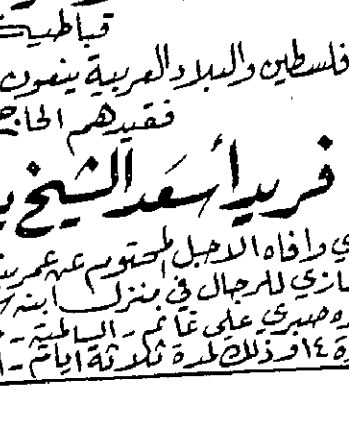 قباطية
فلسطين والبلاد العربية ينعون
فقيدهم الحاج
فريد أسعد الشيخ
وافاه الاجل المحتوم عن عمر
للرجال في منزل ابنه
صبري علي غانم - السالمية -
١٤ وذلك لمدة ثلاثة ايام -